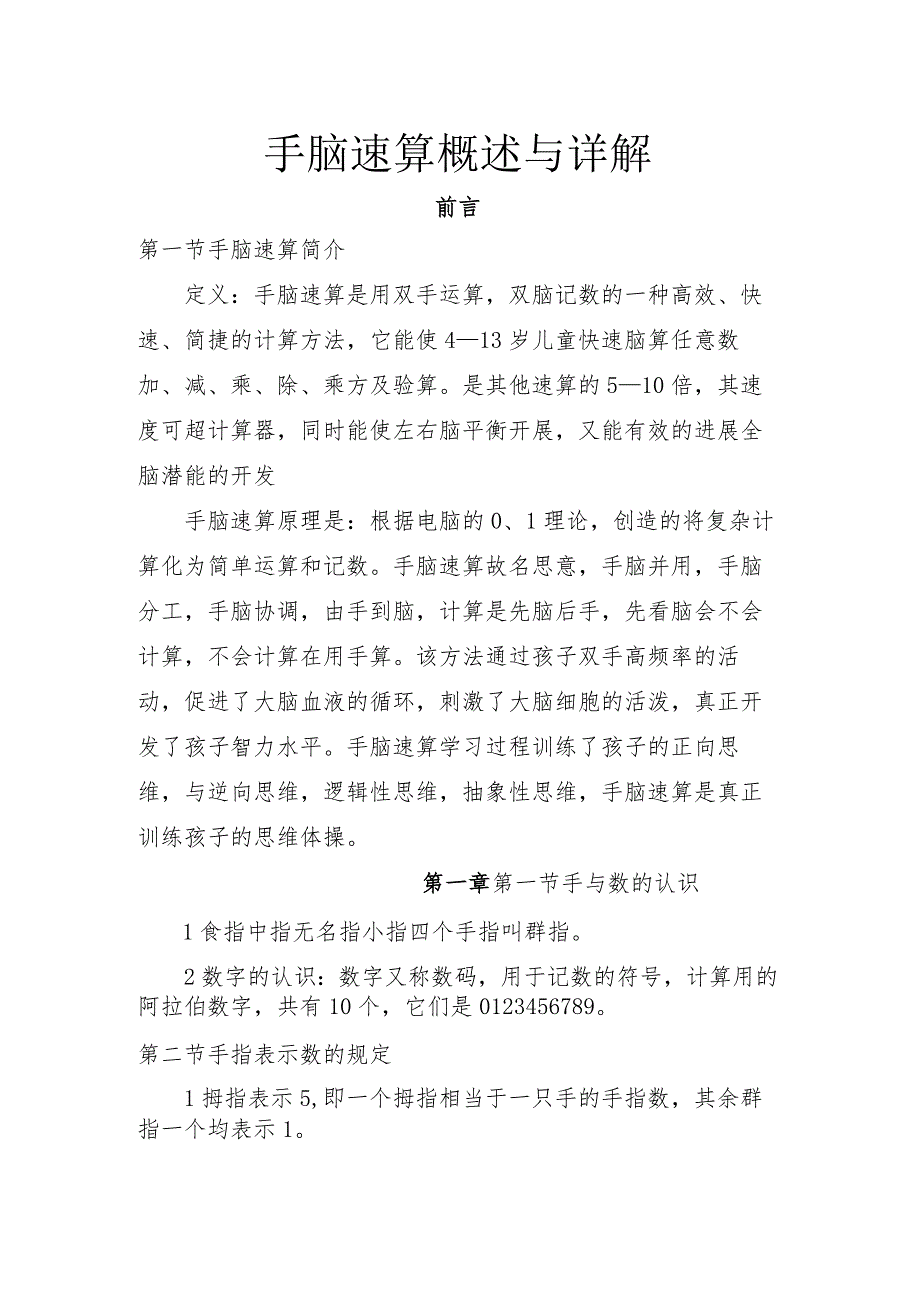 手脑速算概述与详解
前言
第一节手脑速算简介
定义：手脑速算是用双手运算，双脑记数的一种高效、快
速、简捷的计算方法，它能使4—13岁儿童快速脑算任意数
加、减、乘、除、乘方及验算。是其他速算的5—10倍，其速
度可超计算器，同时能使左右脑平衡开展，又能有效的进展全
脑潜能的开发
手脑速算原理是：根据电脑的0、1理论，创造的将复杂计
算化为简单运算和记数。手脑速算故名思意，手脑并用，手脑
分工，手脑协调，由手到脑，计算是先脑后手，先看脑会不会
计算，不会计算在用手算。该方法通过孩子双手高频率的活
动，促进了大脑血液的循环，刺激了大脑细胞的活泼，真正开
发了孩子智力水平。手脑速算学习过程训练了孩子的正向思
维，与逆向思维，逻辑性思维，抽象性思维，手脑速算是真正
训练孩子的思维体操。
第一章第一节手与数的认识
1食指中指无名指小指四个手指叫群指。
2数字的认识：数字又称数码，用于记数的符号，计算用的
阿拉伯数字，共有10个，它们是0123456789。
第二节手指表示数的规定
1拇指表示5,即一个拇指相当于一只手的手指数，其余群
指一个均表示1。